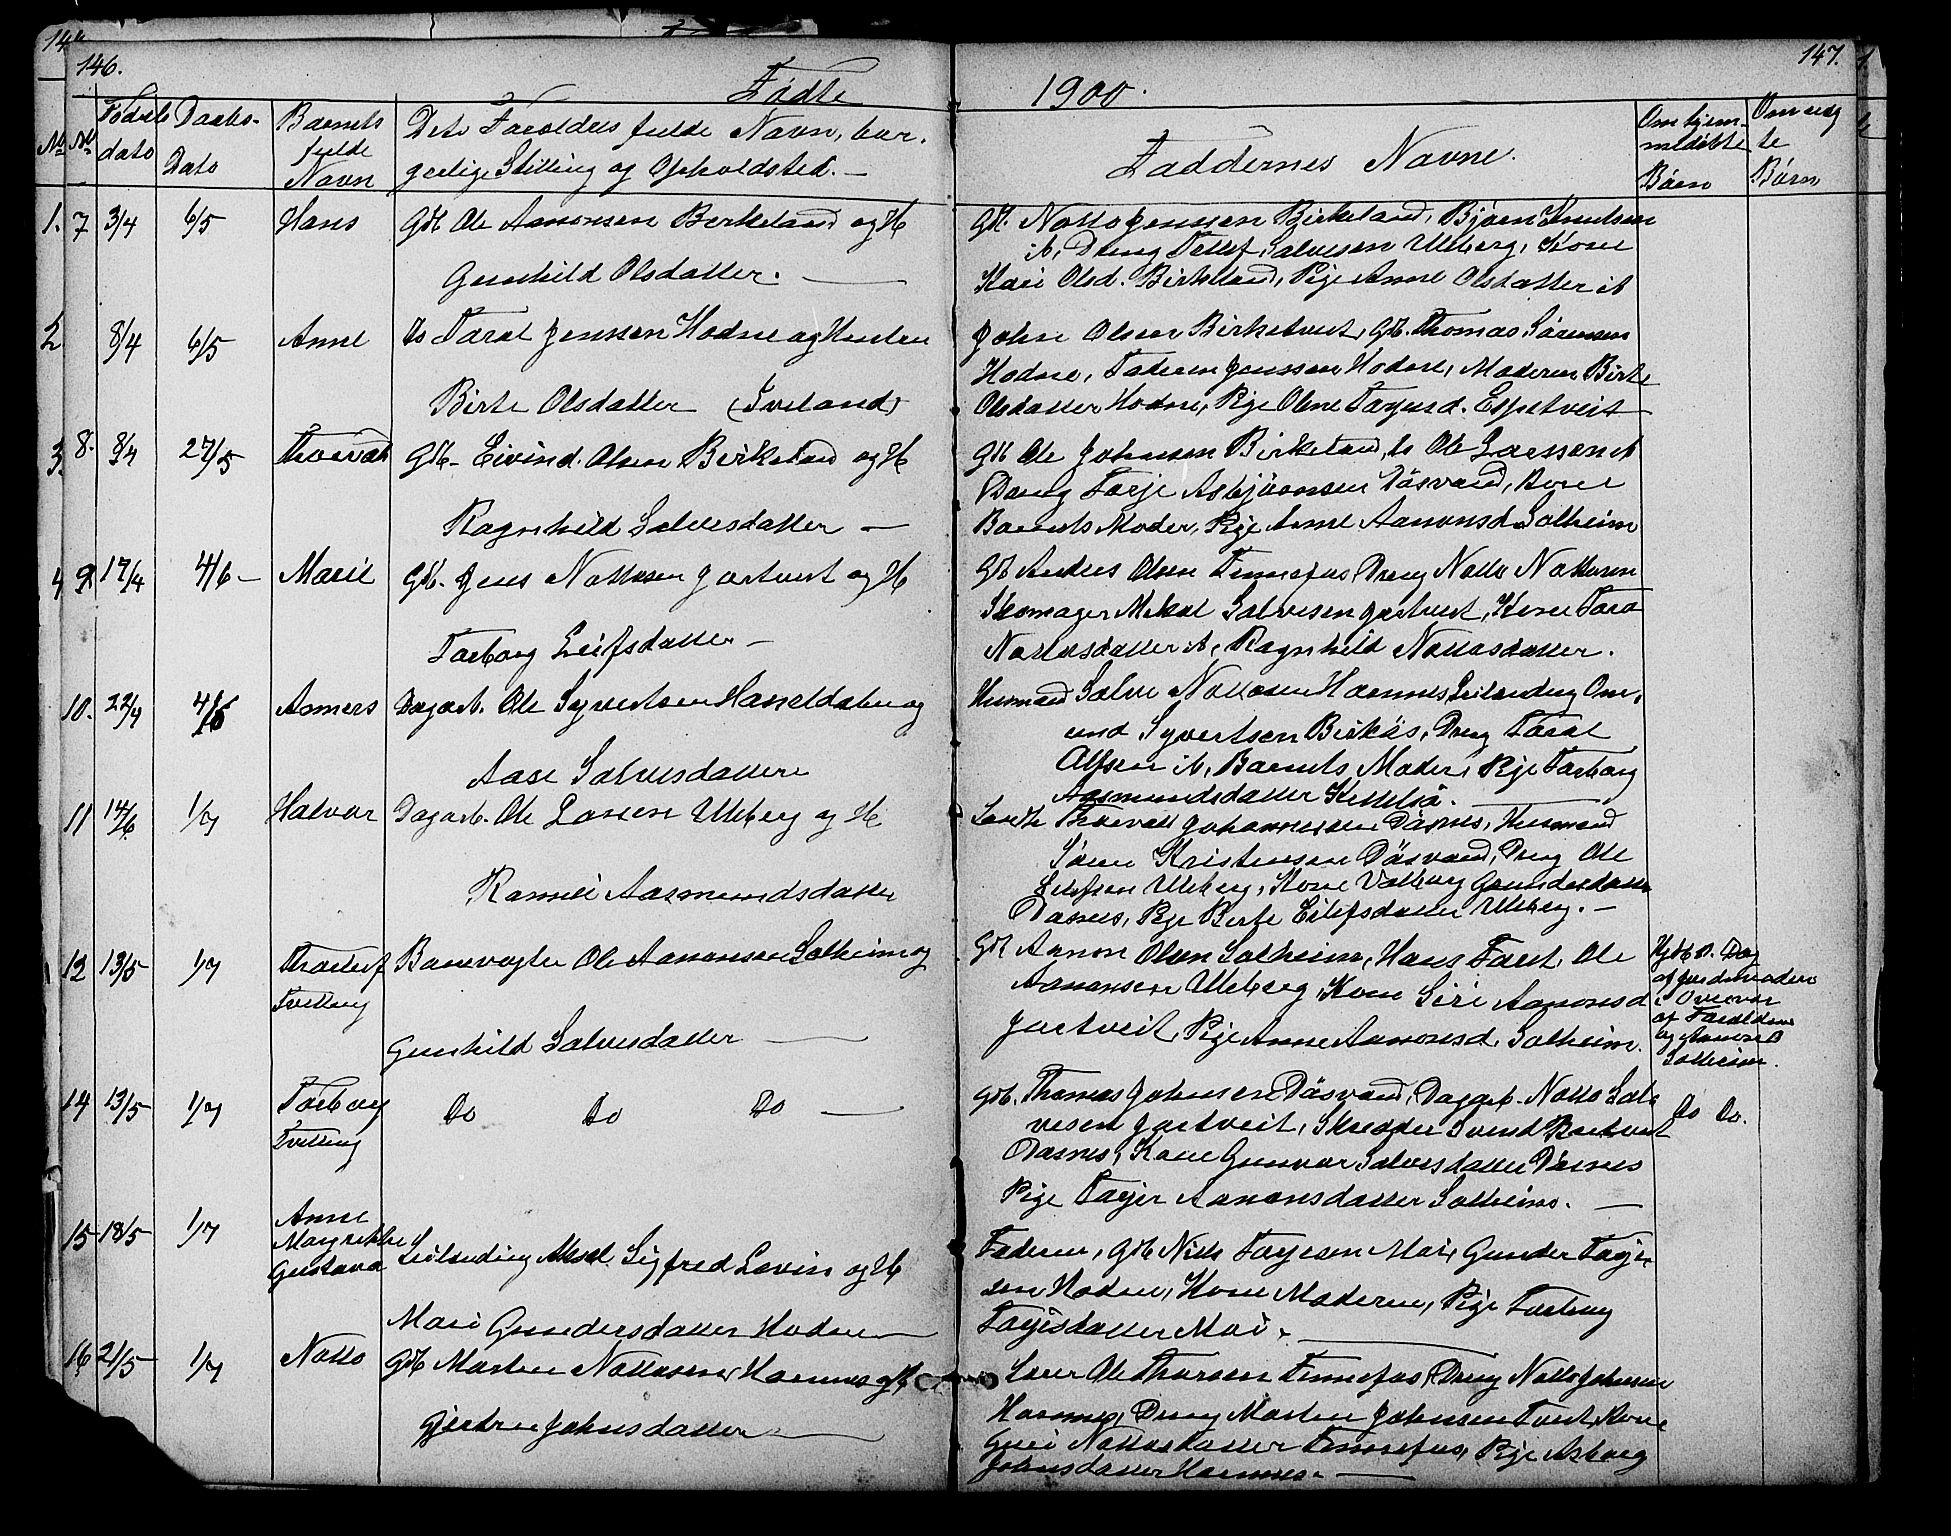 146.
Fødte
1900.
147.
No
Fødselsdato
Daabs-Dato
Barnets fulde Navn
Dets Forældres fulde Navn, borgerlige Stilling og Opholdsted. —
Faddernes Navne.
Om hjemmedøbte Børn
Om uægte Børn
1. 7 3/4 6/5 Hans Gbr Ole Aanonsen Birkeland og H
Gunhild Olsdatter. —
Gbr. Notto Jenssen Birkeland, Bjørn Knudsen
ib, Dreng Tellef Salvesen Uleberg, Kone
Kari Olsd. Birkeland, Pige Anne Olsdatter ib
2 8/4 6/5 Anne Is Taral Jenssen Hodne og Hustru
Birte Olsdatter (Iveland)
John Olsen Birketveit, Gbr. Thomas Sørensen
Hodne, Faderen Jenssen Hodne, Moderen Birte
Olsdatter Hodne, Pige Olene Torjusd. Espetveit
3. 8. 8/4 27/5 Thorvald Gbr. Eivind Olsen Birkeland og H
Ragnhild Salvesdatter —
Gbr Ole Johnsen Birkeland, Is Ole Larssen ib
Dreng Torje Asbjørnsen Dåsvand, Kone
Barnets Moder, Pige Anne Aanonsd Solheim
4 9 17/4 4/6 — Marie Gbr. Jens Nottosen Jortveit og H
Torborg Leifsdatter —
Gbr Anders Olsen Finnefos, Dreng Notto Nottosen
Skomager Mikal Salvesen Jortveit, Kone Tora
Nottosdatter ib, Ragnhild Nottosdatter.
10. 22/4 4/6 Asmers Dagarb. Ole Syvertsen Haneldalen og
Aase Salvesdatter
Husmand Salve Nottosen Haornes, Leilending Omund
Syvertsen Birkås, Dreng Taral
Alfsen ib, Barnets Moder, Pige Torborg
Aasmundsdatter Kettelså.
11 14/6 1/7 Halvor Dagarb. Ole Larsen Uleberg og H
Ramlei Aasmundsdatter
Landh Thorvald Johannessen Dåsnes, Husmand
Søren Kristensen Dåsvand, Dreng Ole
Eilefsen Uleberg, Kone Valborg Gundersdatter
Dåsnes, Pige Berte Eilefsdatter Uleberg. —
12 13/5 1/7 Thorleif Tvilling Banevogter Ole Aanonsen Solheim og
Gunhild Salvesdatter —
Gbr Aanon Olsen Solheim, Hans Foret, Ole
Aanonsen Uleberg, Kone Siri Aanonsd
Jortveit, Pige Anne Aanonsd. Solheim.
Hjdbt s. Dag
af Jordmoderen
i Overvær
af Forældrene
og Aanon
Solheim.
14 13/5 1/7 Torborg Tvilling Do Do Do —
Gbr. Thomas Johnsen Dåsvand, Dagarb. Notto Salvesen
Jortveit, Skrædder Svend Ravtveit
Dåsnes, Kone Gunvor Salvesdatter Dåsnes
Pige Torjer Aanonsdatter Solheim. —
Do Do.
15 18/5 1/7 Anne
Margrethe
Gustava Leilending Aksel Sigfred Lovin og H
Mari Gundersdatter Hodne —
Faderen, Gbr Niels Torjesen Moi, Gunder Torjesen
Hodne, Kone Moderen, Pige Torborg
Torjesdatter Moi. —
16 21/5 1/7 Notto Gbr Morten Nottosen Haornes og H
Gjertrue Johnsdatter —
Lærer Ole Thorsen Finnefos, Dreng Notto Johnsen
Haornes, Dreng Morten Johnsen Tveit, Kone
Guri Nottosdatter Finnefos, Pige Asborg
Johnsdatter Haornes. —